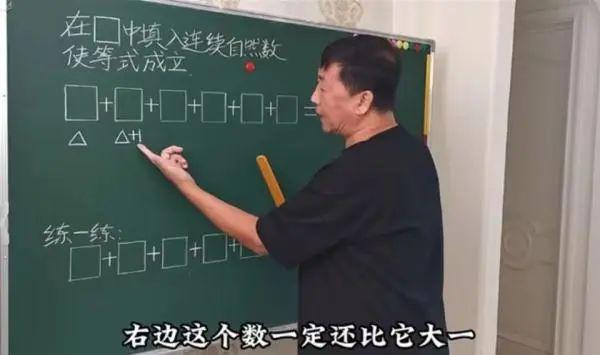 在□中填入连续自然数
使等式成立
□+□+□+□+□+□=
△ △+1
练一练:
□+□+□+□+□
右边这个数一定还比它大一